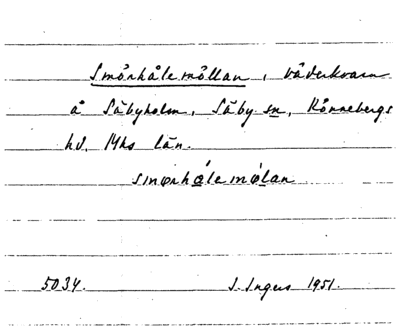 Smörhålemöllan, väderkvarn
å Säbyholm, Säby sn, Rönnebergs
hd, Mhs län.
smørhǫ́lemø̀lan
5034. I. Ingers 1951.